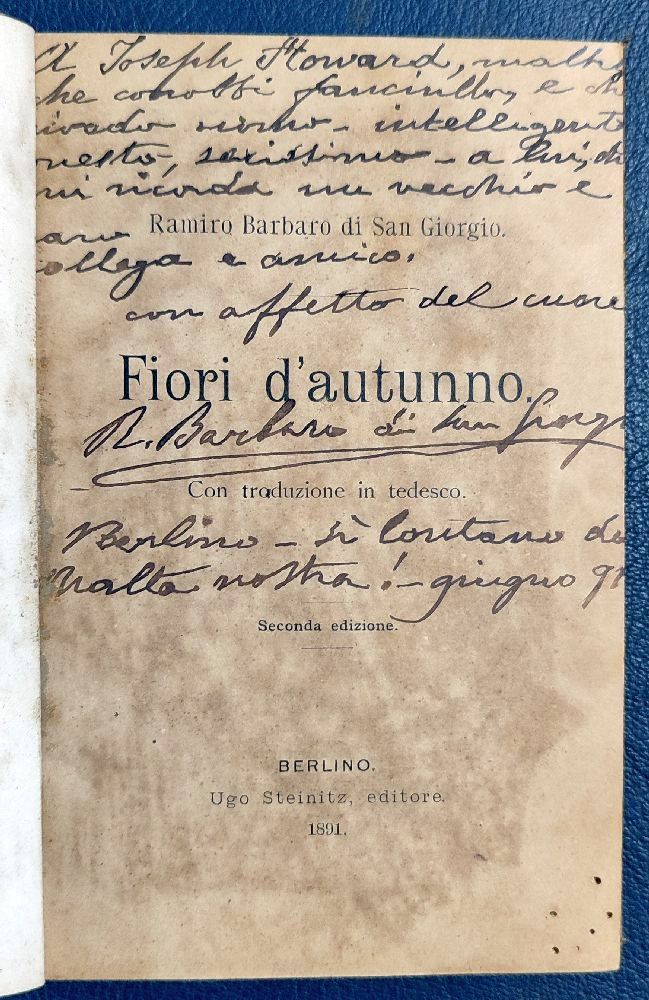 A Joseph Howard, malt
che conobbi fanciullo, e ch
rivado uomo - intelligente
onesto, serissimo - a lui, ch
mi ricorda un vecchio e
Ramiro Barbaro di San Giorgio.
caro
collega e amico.
con affetto del cuore
Fiori d'autunno.
R. Barbaro di San Giorgi
Con traduzione in tedesco.
Berlino - sì lontano da
Malta nostra! - giugno 91
Seconda edizione.
BERLINO.
Ugo Steinitz, editore.
1891.